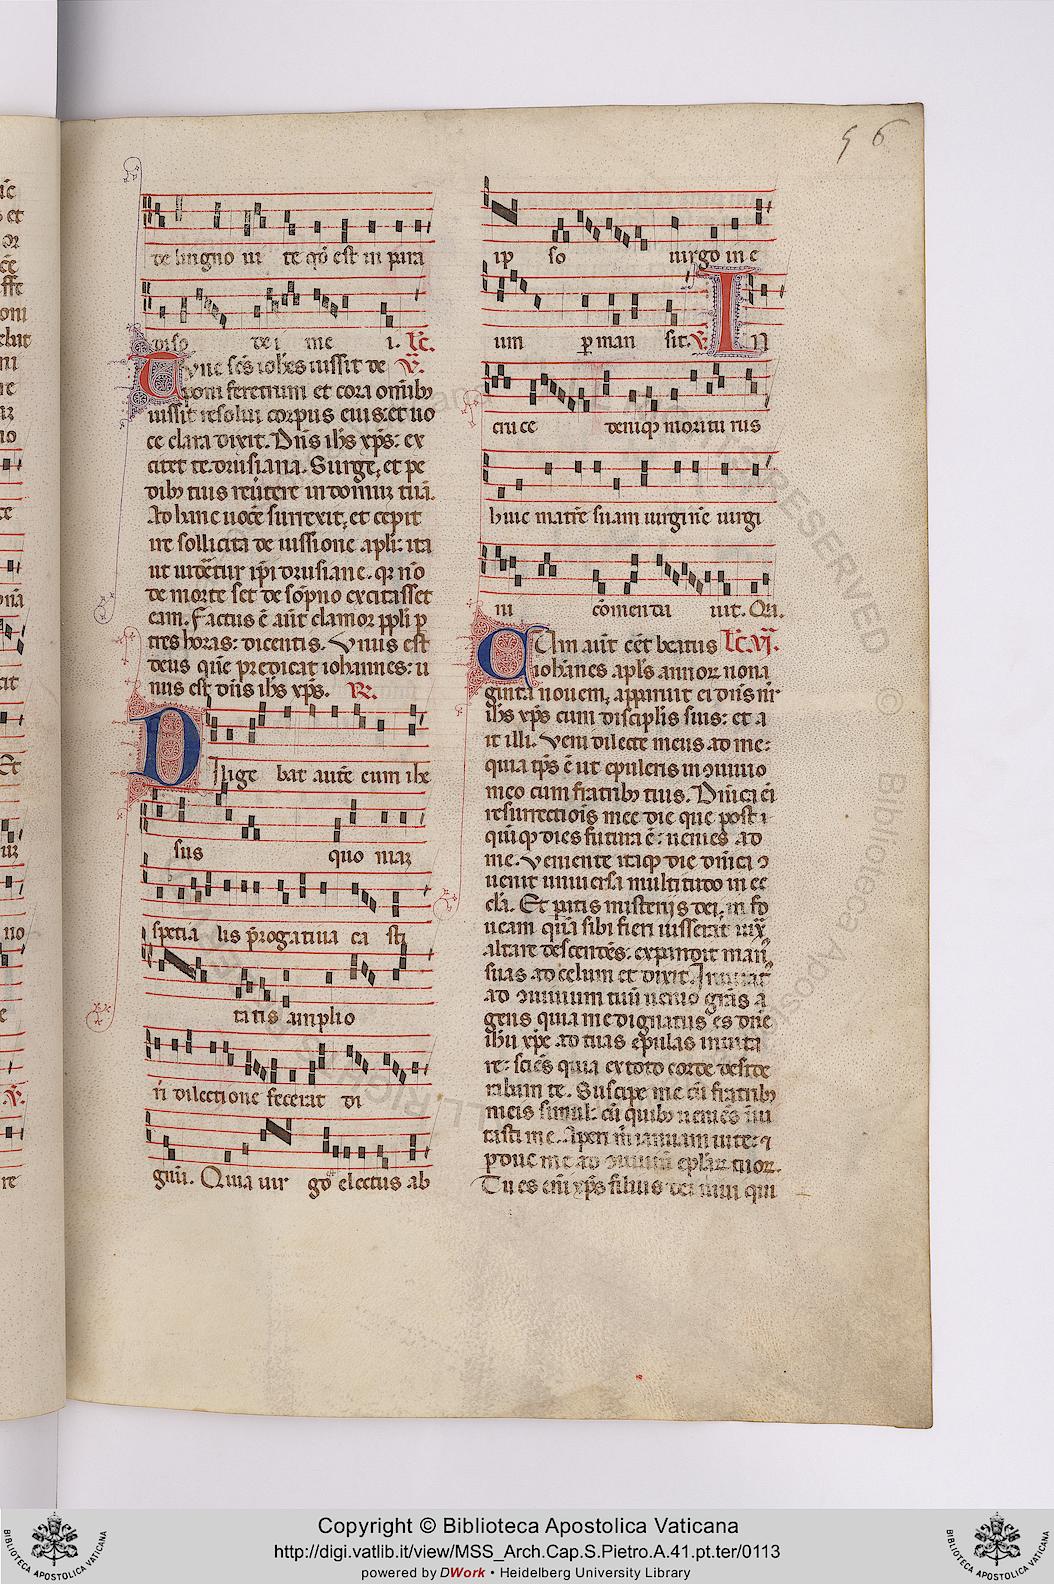 56
de lingno ui te qd̄ est in para
diso dei me i. Lc̄.
Tunc scs̄ ioh̄es iussit de v̄.
poni feretrum et corā omĩbꝰ
iussit resolui corpus eius: et uo
ce clara dixit. Dns̄ ih̄s xp̄s: ex
citet te drusiana. Surge, et pe
dibꝰ tuis reũtere in domuꝫ tuā.
Ad hanc uocē surrexit, et cepit
ire sollicita de iussione apl̄i: ita
ut uidēetur ip̄i drusiane. qr̄ nō
de morte set de sōpno excitasset
eam. Factus ē aūt clamor ppl̄i p
tres horas: dicentis. Vnus est
deus quē predicat iohannes: u
nus est dn̄s ih̄s xp̄s. R̄.
Dilige bat autē eum ihe
sus quo niaꝫ
spetia lis p̄rogatiua ca sti
ta tis amplio
ri dilectione fecerat di
gnū. Quia uir go electus ab
ip so uirgo in e
um ꝑ man sit. v̄. In
cruce deniqꝫ moritu rus
huic matrē suam uirginē uirgi
ni cōmenda uit. Qui.
Cum aūt eēt beatus Lc̄. vi.
ioh̄anes apl̄s annoꝝ nona
ginta nouem, apparuit ei dn̄s nr̄
ih̄s xp̄s cum discipl̄is suis: et a
it illi. Veni dilecte meus ad me:
quia tp̄s ē ut epuleris in ꝯuiuio
meo cum fratribꝰ tuis. Dn̄ica ēi
resurrectiois̄ mee die que post
quīqꝫ dies futura ē: uenies ad
me. Veniente itaqꝫ die dn̄ica ꝯ
uenit uniuersa multitudo in ec
cl̄a. Et ꝑatis misterijs dei, in fo
ueam quā sibi fieri iusserat iux̄
altare descendēs: expandit man̄
suas ad celum et dixit. Inuitat
ad ꝯuiuium tuū uenio grā̄s a
gens quia me dignatus es dn̄e
ih̄u xp̄e ad tuas epulas inuita
re: sciēs quia ex toto corde deside
rabam te. Suscipe me cū fratribꝰ
meis simul: cū quibꝰ ueniēs ĩui
tasti me. Aperi m̄ ianuam uite: ⁊
pduc me ad ꝯuiuiū eplaꝝ tuoꝝ.
Tu es ēni xp̄s filius dei uiui qui
Copyright © Biblioteca Apostolica Vaticana
http://digi.vatlib.it/view/MSS_Arch.Cap.S.Pietro.A.41.pt.ter/0113
powered by DWork • Heidelberg University Library
BIBLIOTECA APOSTOLICA VATICANA
BIBLIOTECA APOSTOLICA VATICANA